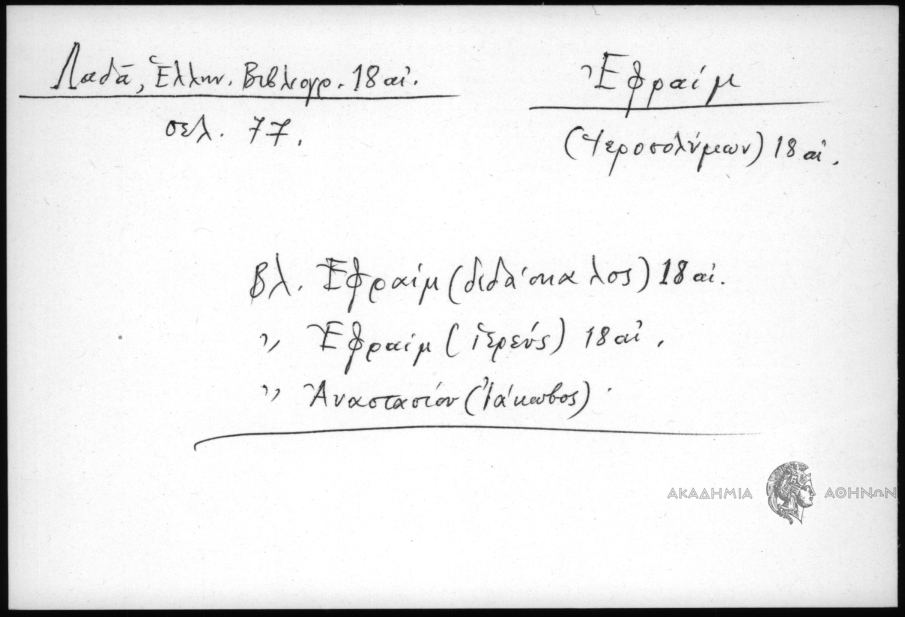 Λαδᾶ, Ἑλλην. Βιβλιογρ. 18 αἰ.
σελ. 77.
Ἐφραίμ
(Ἱεροσολύμων) 18 αἰ.
Βλ. Ἐφραίμ (διδάσκαλος) 18 αἰ.
〃 Ἐφραίμ (ἱερεύς) 18 αἰ.
〃 Ἀναστασίου (Ἰάκωβος)
ΑΚΑΔΗΜΙΑ ΑΘΗΝΩΝ